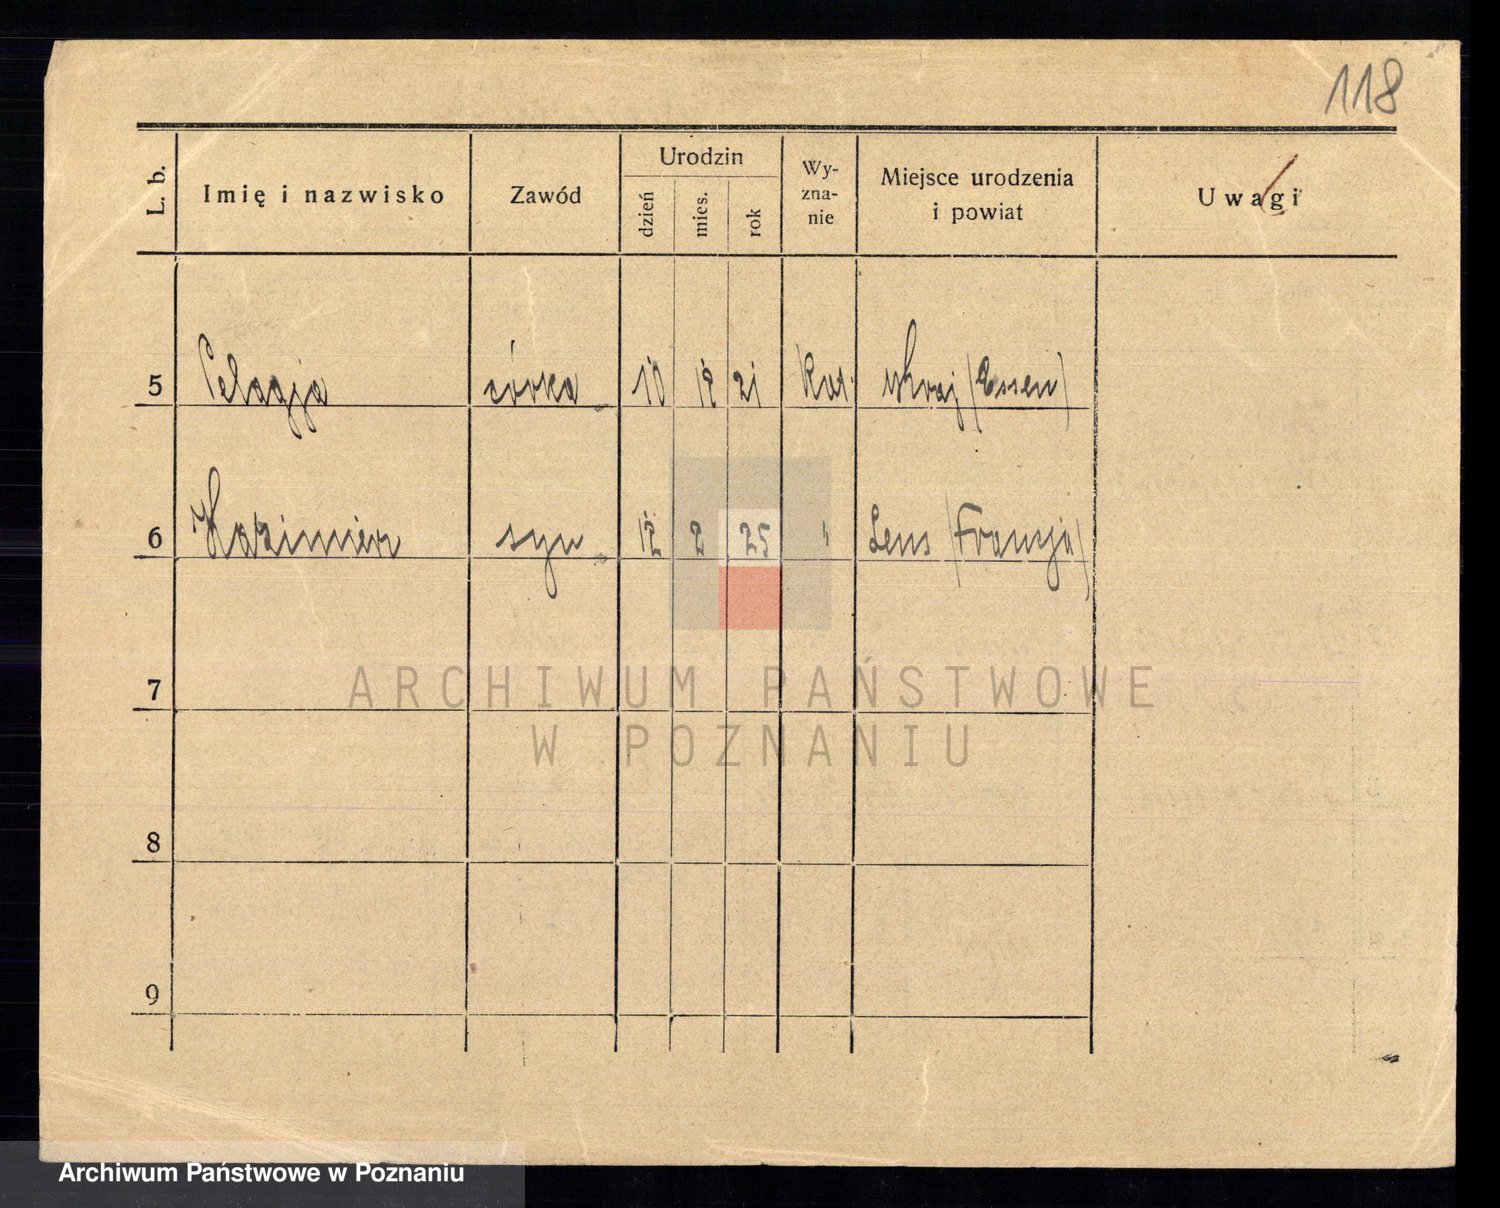 118
L. b.
Imię i nazwisko
Zawód
Urodzin
dzień
mies.
rok
Wy-
zna-
nie
Miejsce urodzenia
i powiat
Uwagi
5 Pelagja córka 10 12 21 Kat. (Essen)
6 Kazimier syn 12 2 25 " Lens (Francja)
7
8
9
ARCHIWUM PAŃSTWOWE
W POZNANIU
Archiwum Państwowe w Poznaniu